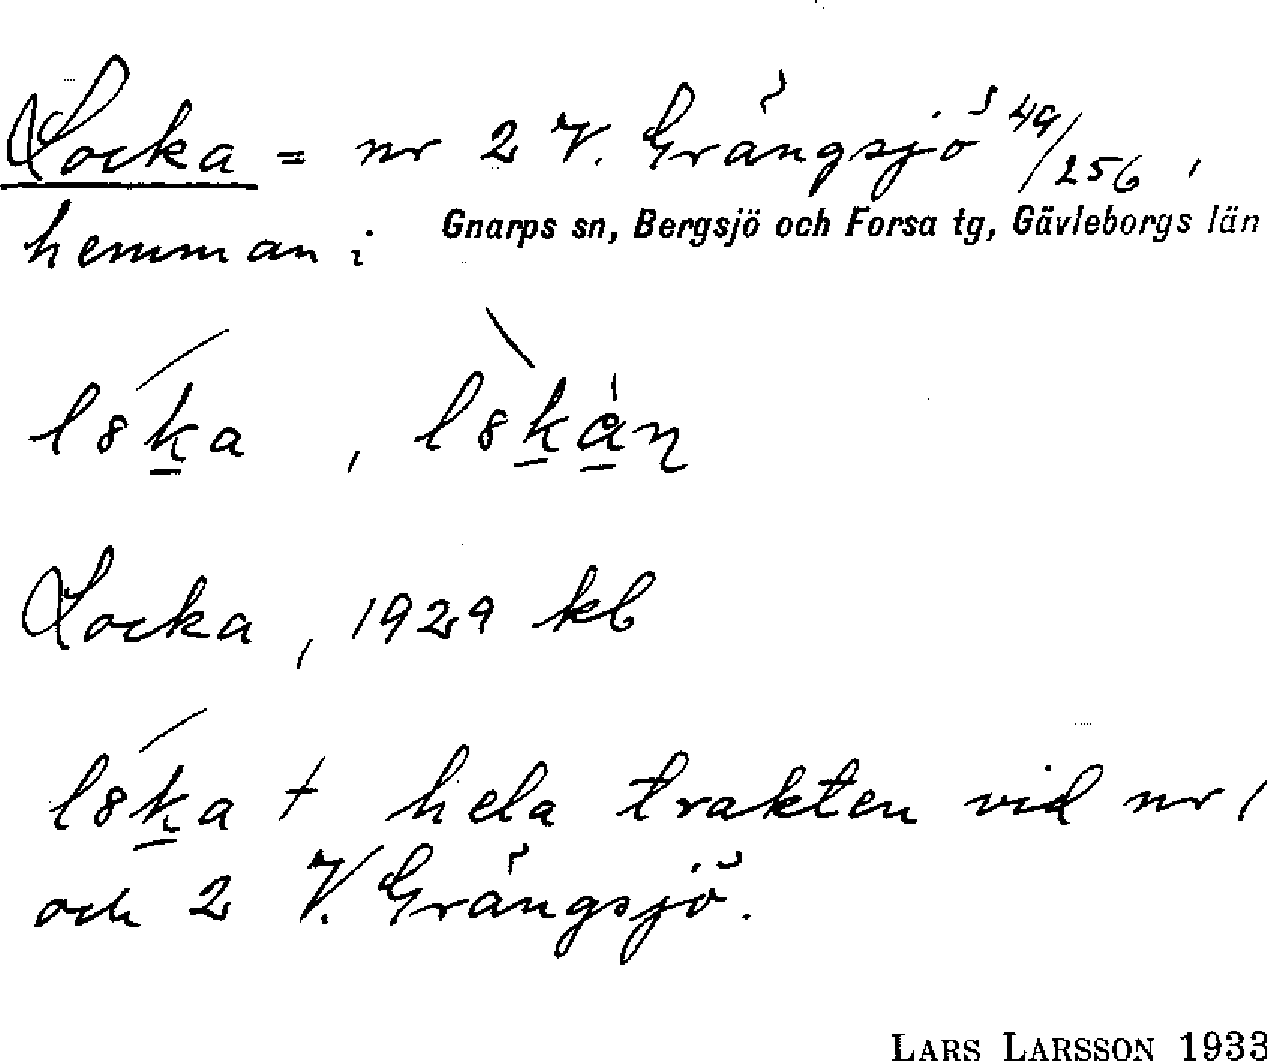 Locka = nr 2 V. Grängsjö 49/256,
hemman i Gnarps sn, Bergsjö och Forsa tg, Gävleborgs län
Locka, 1929 kb
hela trakten vid nr 1
och 2 V. Grängsjö.
LARS LARSSON 1933